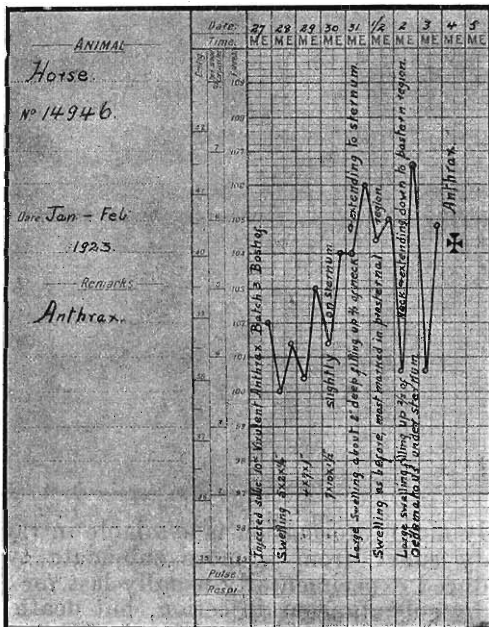 ANIMAL
Horse.
Nº 14946.
Date Jan - Feb
1923.
Remarks
Anthrax.
Date: 27 28 29 30 31 1/2 2 3 4 5
Time: M E M E M E M E M E M E M E M E M E M E
109
108
107
106
105
104
103
102
101
100
99
98
97
96
95
Pulse
Respn
Injected subc. Virulent Anthrax Batch 3. Boshof.
Swelling
slightly on sternum
Large swelling about 2" deep filling up of neck extending to sternum.
Swelling as before, most marked in presternal region.
Large swelling filling up of neck extending down to pastern region.
Oedematous under sternum
Anthrax.